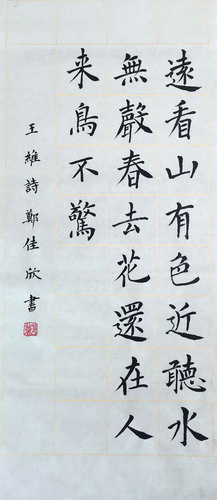 遠看山有色近聽水
無聲春去花還在人
来鳥不驚
王維詩鄭佳欣書